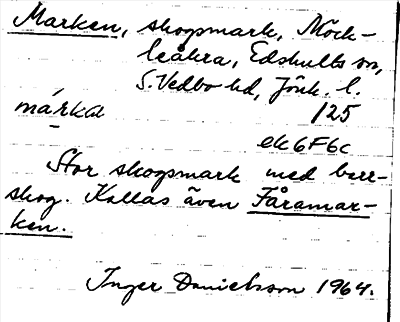 Marken, skogsmark, Möck-
leåkra, Edshults sn,
S. Vedbo hd, Jönk. l.
márka 125
ek6F6c
Stor skogsmark med barr-
skog. Kallas även Fåramar-
ken.
Inger Danielsson 1964.